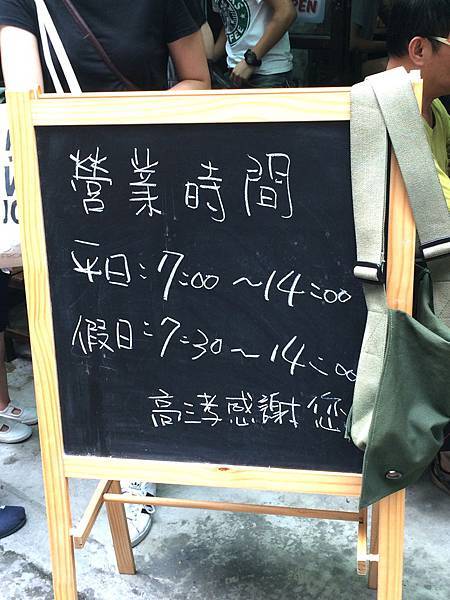 OPEN
營業時間
平日：7:00～14:00
假日：7:30～14:00
高三孝感謝您